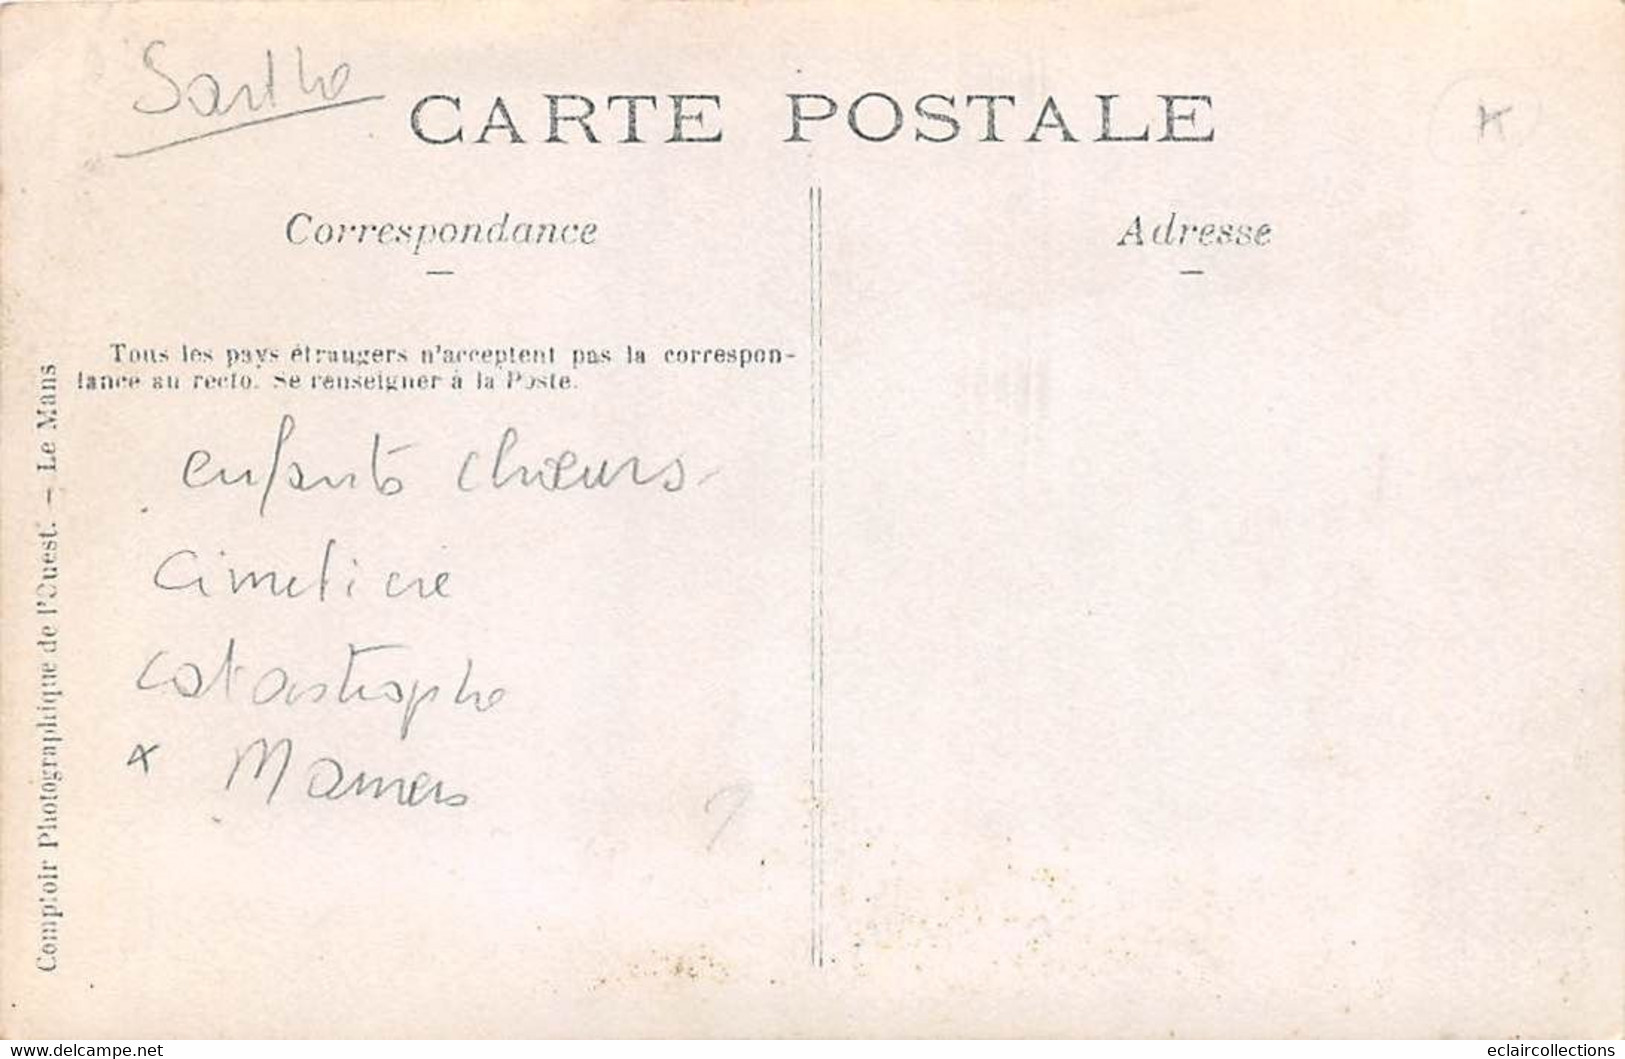 Sarthe
CARTE POSTALE
Correspondance
Adresse
Tous les pays étrangers n'acceptent pas la correspon-
dance au recto. Se renseigner à la Poste.
enfants chœurs
cimetiere
catastrophe
x Mamers
Comptoir Photographique de l'Ouest. - Le Mans
https://www.delcampe.net
eclaircollections